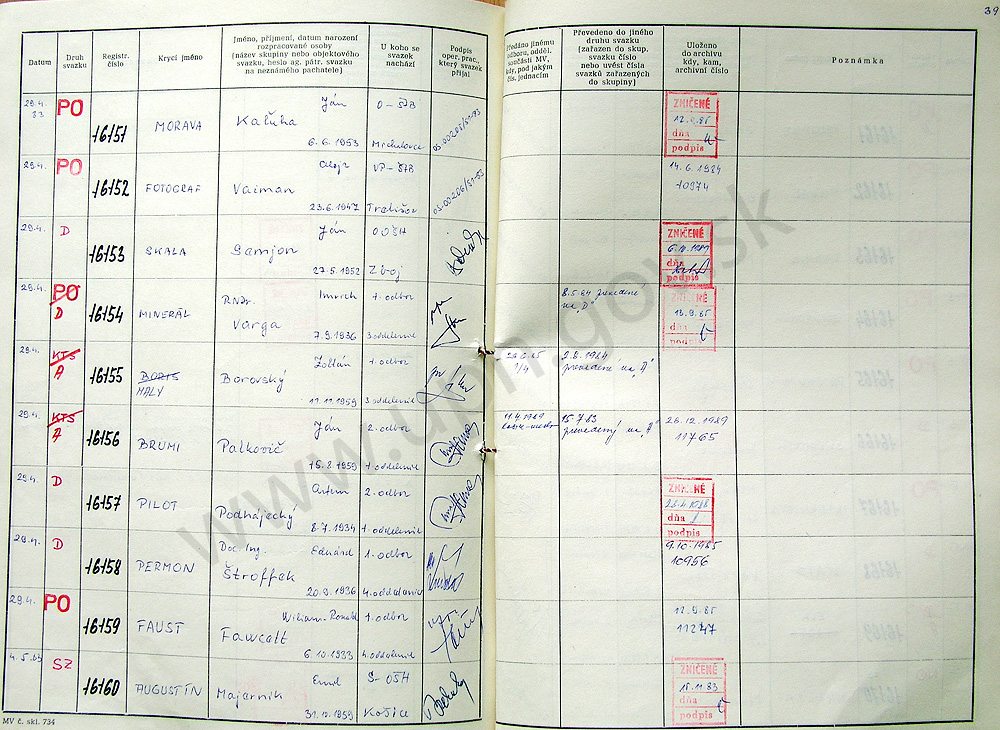 39
Datum
Druh svazku
Registr. číslo
Krycí jméno
Jméno, příjmení, datum narození rozpracované osoby (název skupiny nebo objektového svazku, heslo ag. pátr. svazku na neznámého pachatele)
U koho se svazek nachází
Podpis oper. prac., který svazek přijal
Předáno jinému odboru, odděl. součásti MV, kdy, pod jakým čís. jednacím
Převedeno do jiného druhu svazku (zařazen do skup. svazku číslo nebo uvést čísla svazků zařazených do skupiny)
Uloženo do archivu kdy, kam, archivní číslo
Poznámka
29.4. 83 PO 16151 MORAVA Ján Kaľuha 6.6.1953 O-ŠtB Michalovce
ZNIČENÉ
12.9.85
dňa
podpis
29.4. PO 16152 FOTOGRAF Vaiman 23.6.1947 VP-ŠtB Trebišov
14.6.1984
10874
29.4. D 16153 SKALA Ján Samjon 27.5.1952 OOŠH Zboj
ZNIČENÉ
dňa
podpis
29.4. PO D 16154 MINERÁL RNDr. Imrich Varga 7.9.1936 1. odbor 3. oddelenie
8.5.84 prevedené na "D"
ZNIČENÉ
13.9.85
dňa
podpis
29.4. KTS A 16155 BORIS MALÝ Zoltán Borovský 11.11.1959 1. odbor 3. oddelenie
2.8.1984 prevedený na "A"
29.4. KTS A 16156 BRUMI Ján Palkovič 15.8.1959 2. odbor 1. oddelenie
11.4.1989
15.7.83 prevedený na "A"
28.12.1989
11765
29.4. D 16157 PILOT Artem Podhájecký 8.7.1934 2. odbor 1. oddelenie
ZNIČENÉ
dňa
podpis
29.4. D 16158 PERMON Doc. Ing. Eduard Štroffek 20.9.1936 1. odbor 4. oddelenie
9.10.1985
10956
29.4. PO 16159 FAUST William-Ronald Fawcett 6.10.1933 1. odbor 4. oddelenie
12.9.85
11247
4.5.83 SZ 16160 AUGUSTÍN Emil Majerník 31.12.1959 S-OŠH Košice
ZNIČENÉ
15.11.83
dňa
podpis
MV č. skl. 734
www.upn.gov.sk